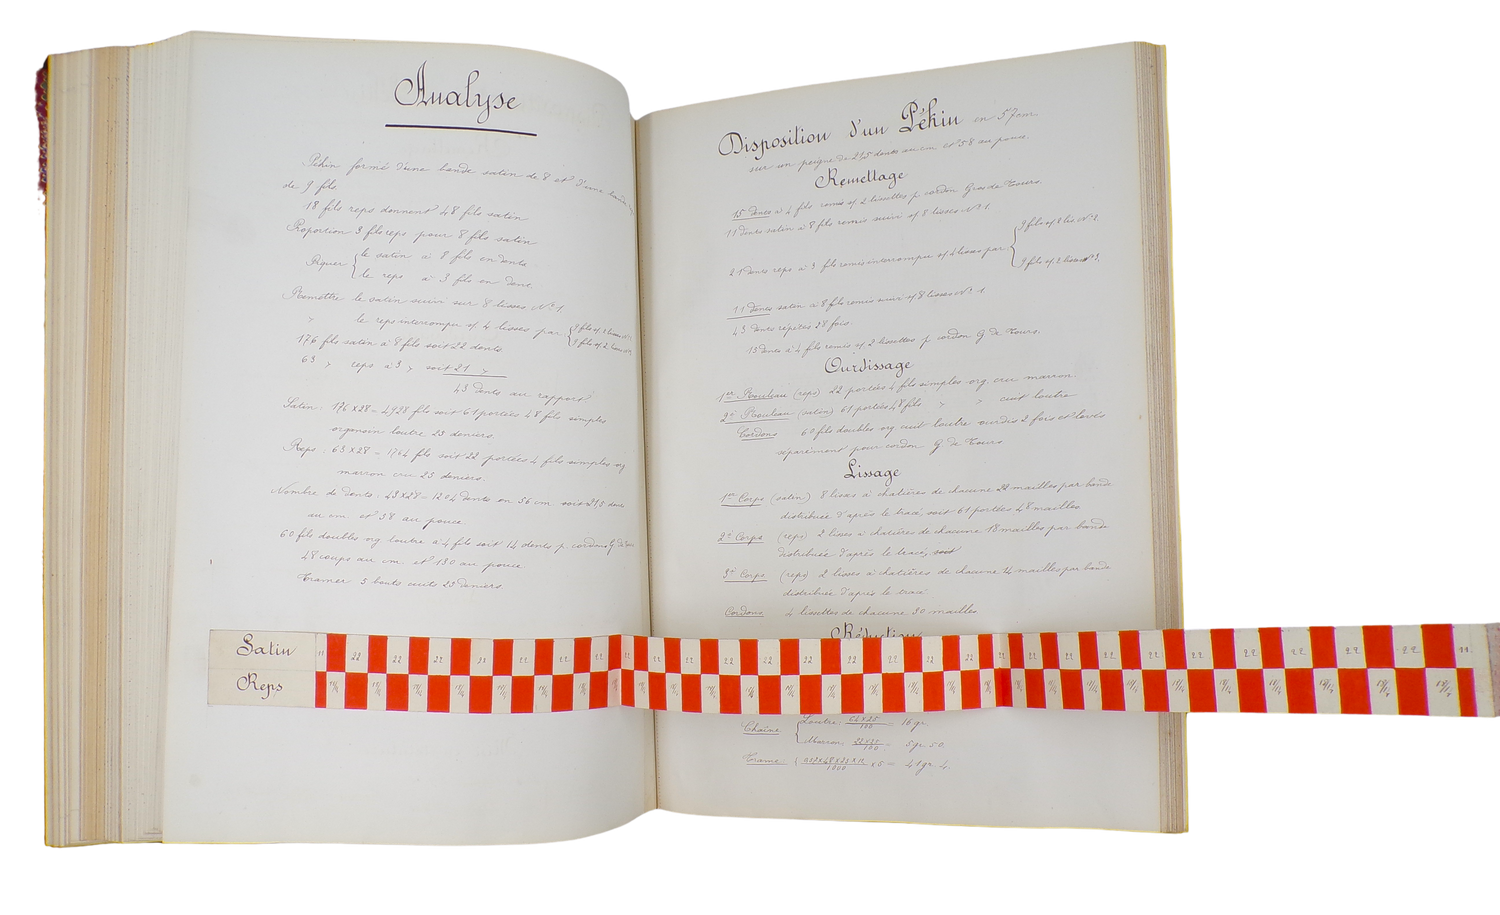 Analyse
Pékin formé d'une bande satin de 8 et d'une bande
de 9 fils.
18 fils reps donnent 48 fils satin
Proportion 3 fils reps pour 8 fils satin
Piquer { le satin à 8 fils en dents
le reps à 3 fils en dent.
Remettre le satin suivi sur 8 lisses Nº 1.
" le reps interrompu s/ 4 lisses par { 9 fils s/ 2 lisses Nº
9 fils s/ 2 lisses Nº
176 fils satin à 8 fils soit 22 dents
63 " reps à 3 " soit 21 "
43 dents au rapport
Satin: 176 x 28 = 4928 fils soit 61 portées 48 fils simples
organsin loutre 23 deniers.
Reps: 63 x 28 = 1764 fils soit 22 portées 4 fils simples org
marron cru 25 deniers.
Nombre de dents: 43 x 28 = 1204 dents en 56 cm soit 21,5 dents
au cm et 58 au pouce.
60 fils doubles org loutre à 4 fils soit 15 dents p. cordons G de
48 coups au cm et 130 au pouce
Tramer 5 bouts cuits 23 deniers.
Disposition d'un Pékin en 57 cm
sur un peigne de 21,5 dents au cm et 58 au pouce.
Remettage
15 dents à 4 fils remis s/ 2 lissettes p. cordon Gros de Tours.
11 dents satin à 8 fils remis suivi s/ 8 lisses Nº 1.
21 dents reps à 3 fils remis interrompu s/ 4 lisses par { 9 fils s/ 2 lisses Nº
9 fils s/ 2 lisses Nº 3.
11 dents satin à 8 fils remis suivi s/ 8 lisses Nº 1.
43 dents répétés 28 fois.
15 dents à 4 fils remis s/ 2 lissettes p. cordon G. de Tours.
Ourdissage
1er Rouleau (reps) 22 portées 4 fils simples org. cru marron.
2e Rouleau (satin) 61 portées 48 fils " " cuit loutre
Cordons 60 fils doubles org cuit loutre ourdis 2 fois et levés
séparément pour cordon G de Tours
Lissage
1er Corps (satin) 8 lisses à chatières de chacune 22 mailles par bande
distribuée d'après le tracé, soit 61 portées 48 mailles
2e Corps (reps) 2 lisses à chatière de chacune 18 mailles par bande
distribuée d'après le tracé, soit
3e Corps (reps) 2 lisses à chatières de chacune 14 mailles par bande
distribuée d'après le tracé.
Cordons 4 lissettes de chacune 30 mailles
Réduction
Satin 11 22 22 22 22 22 22 22 22 22 22 22 22 22 22 22 22 22 22 22 22 22 22 22 22 22 22 22 11
Reps 18/14 18/14 18/14 18/14 18/14 18/14 18/14 18/14 18/14 18/14 18/14 18/14 18/14 18/14 18/14 18/14 18/14 18/14 18/14 18/14 18/14 18/14 18/14 18/14 18/14 18/14 18/14 18/14
Chaîne { Loutre = 16 gr.
Marron = 5 gr 50.
Trame x 5 = 41 gr 4.